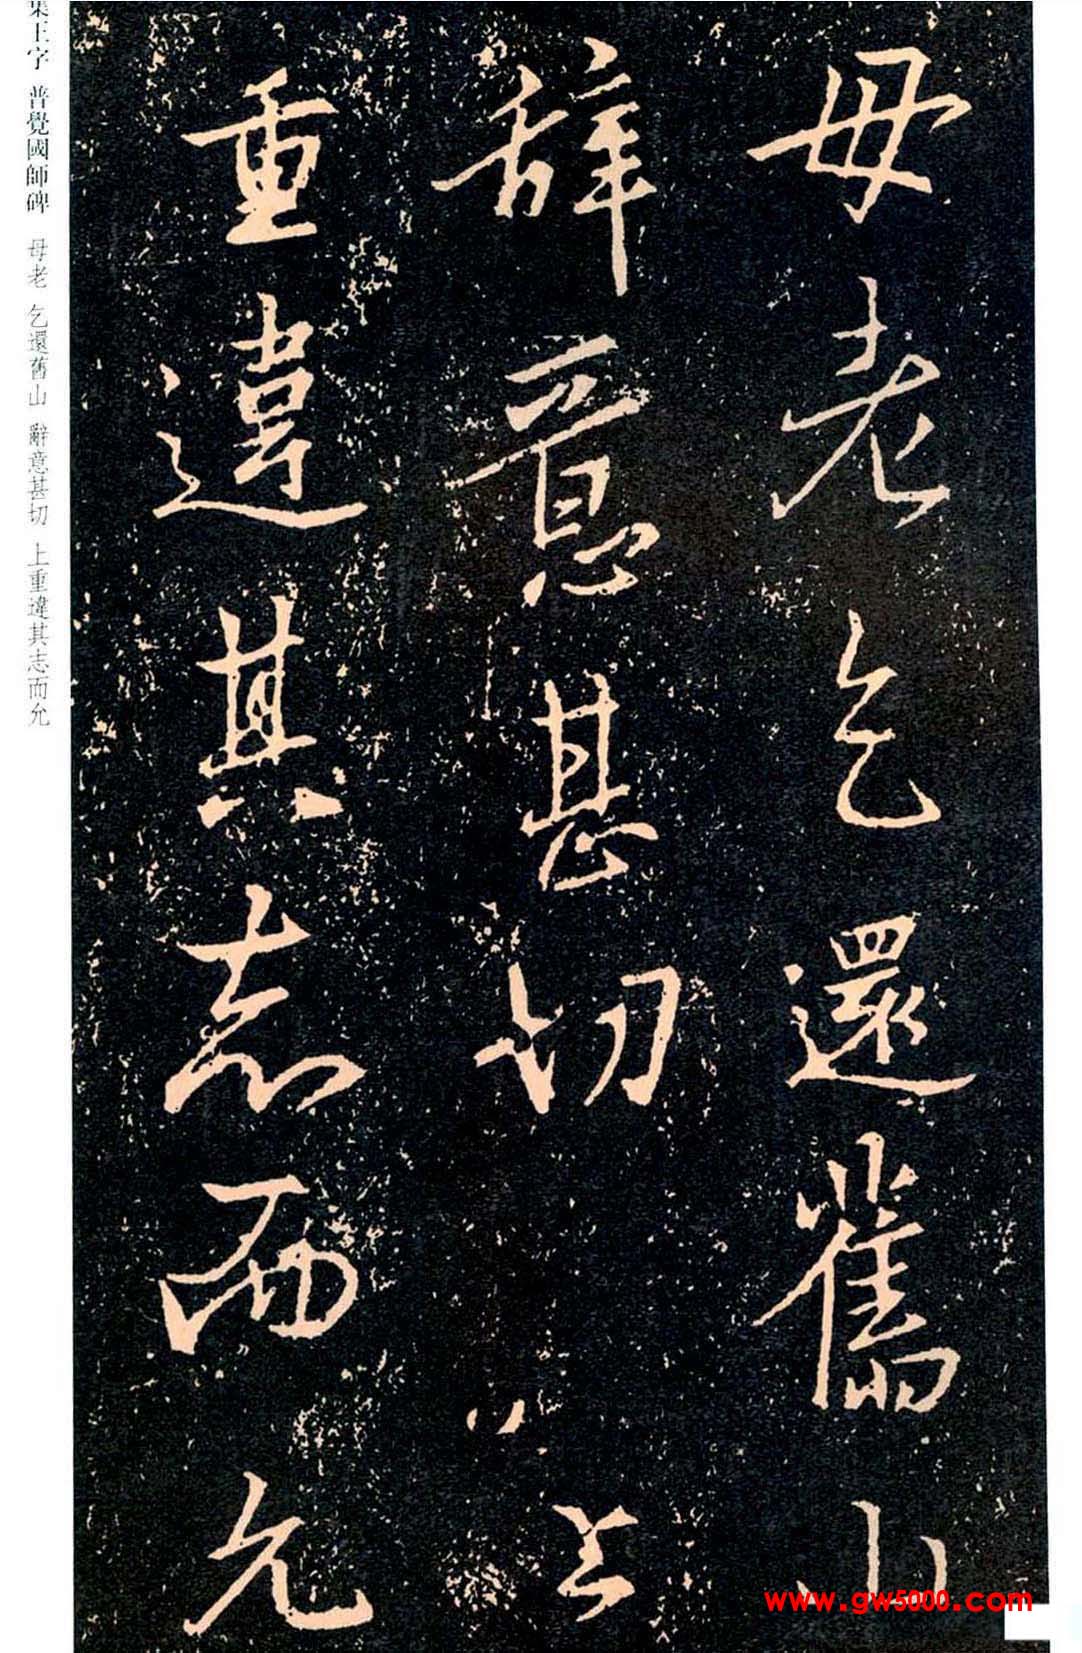 母老乞還舊山
辭意甚切上
重違其志而允
集王字 普覺國師碑 母老 乞還舊山 辭意甚切 上重違其志而允
www.gw5000.com